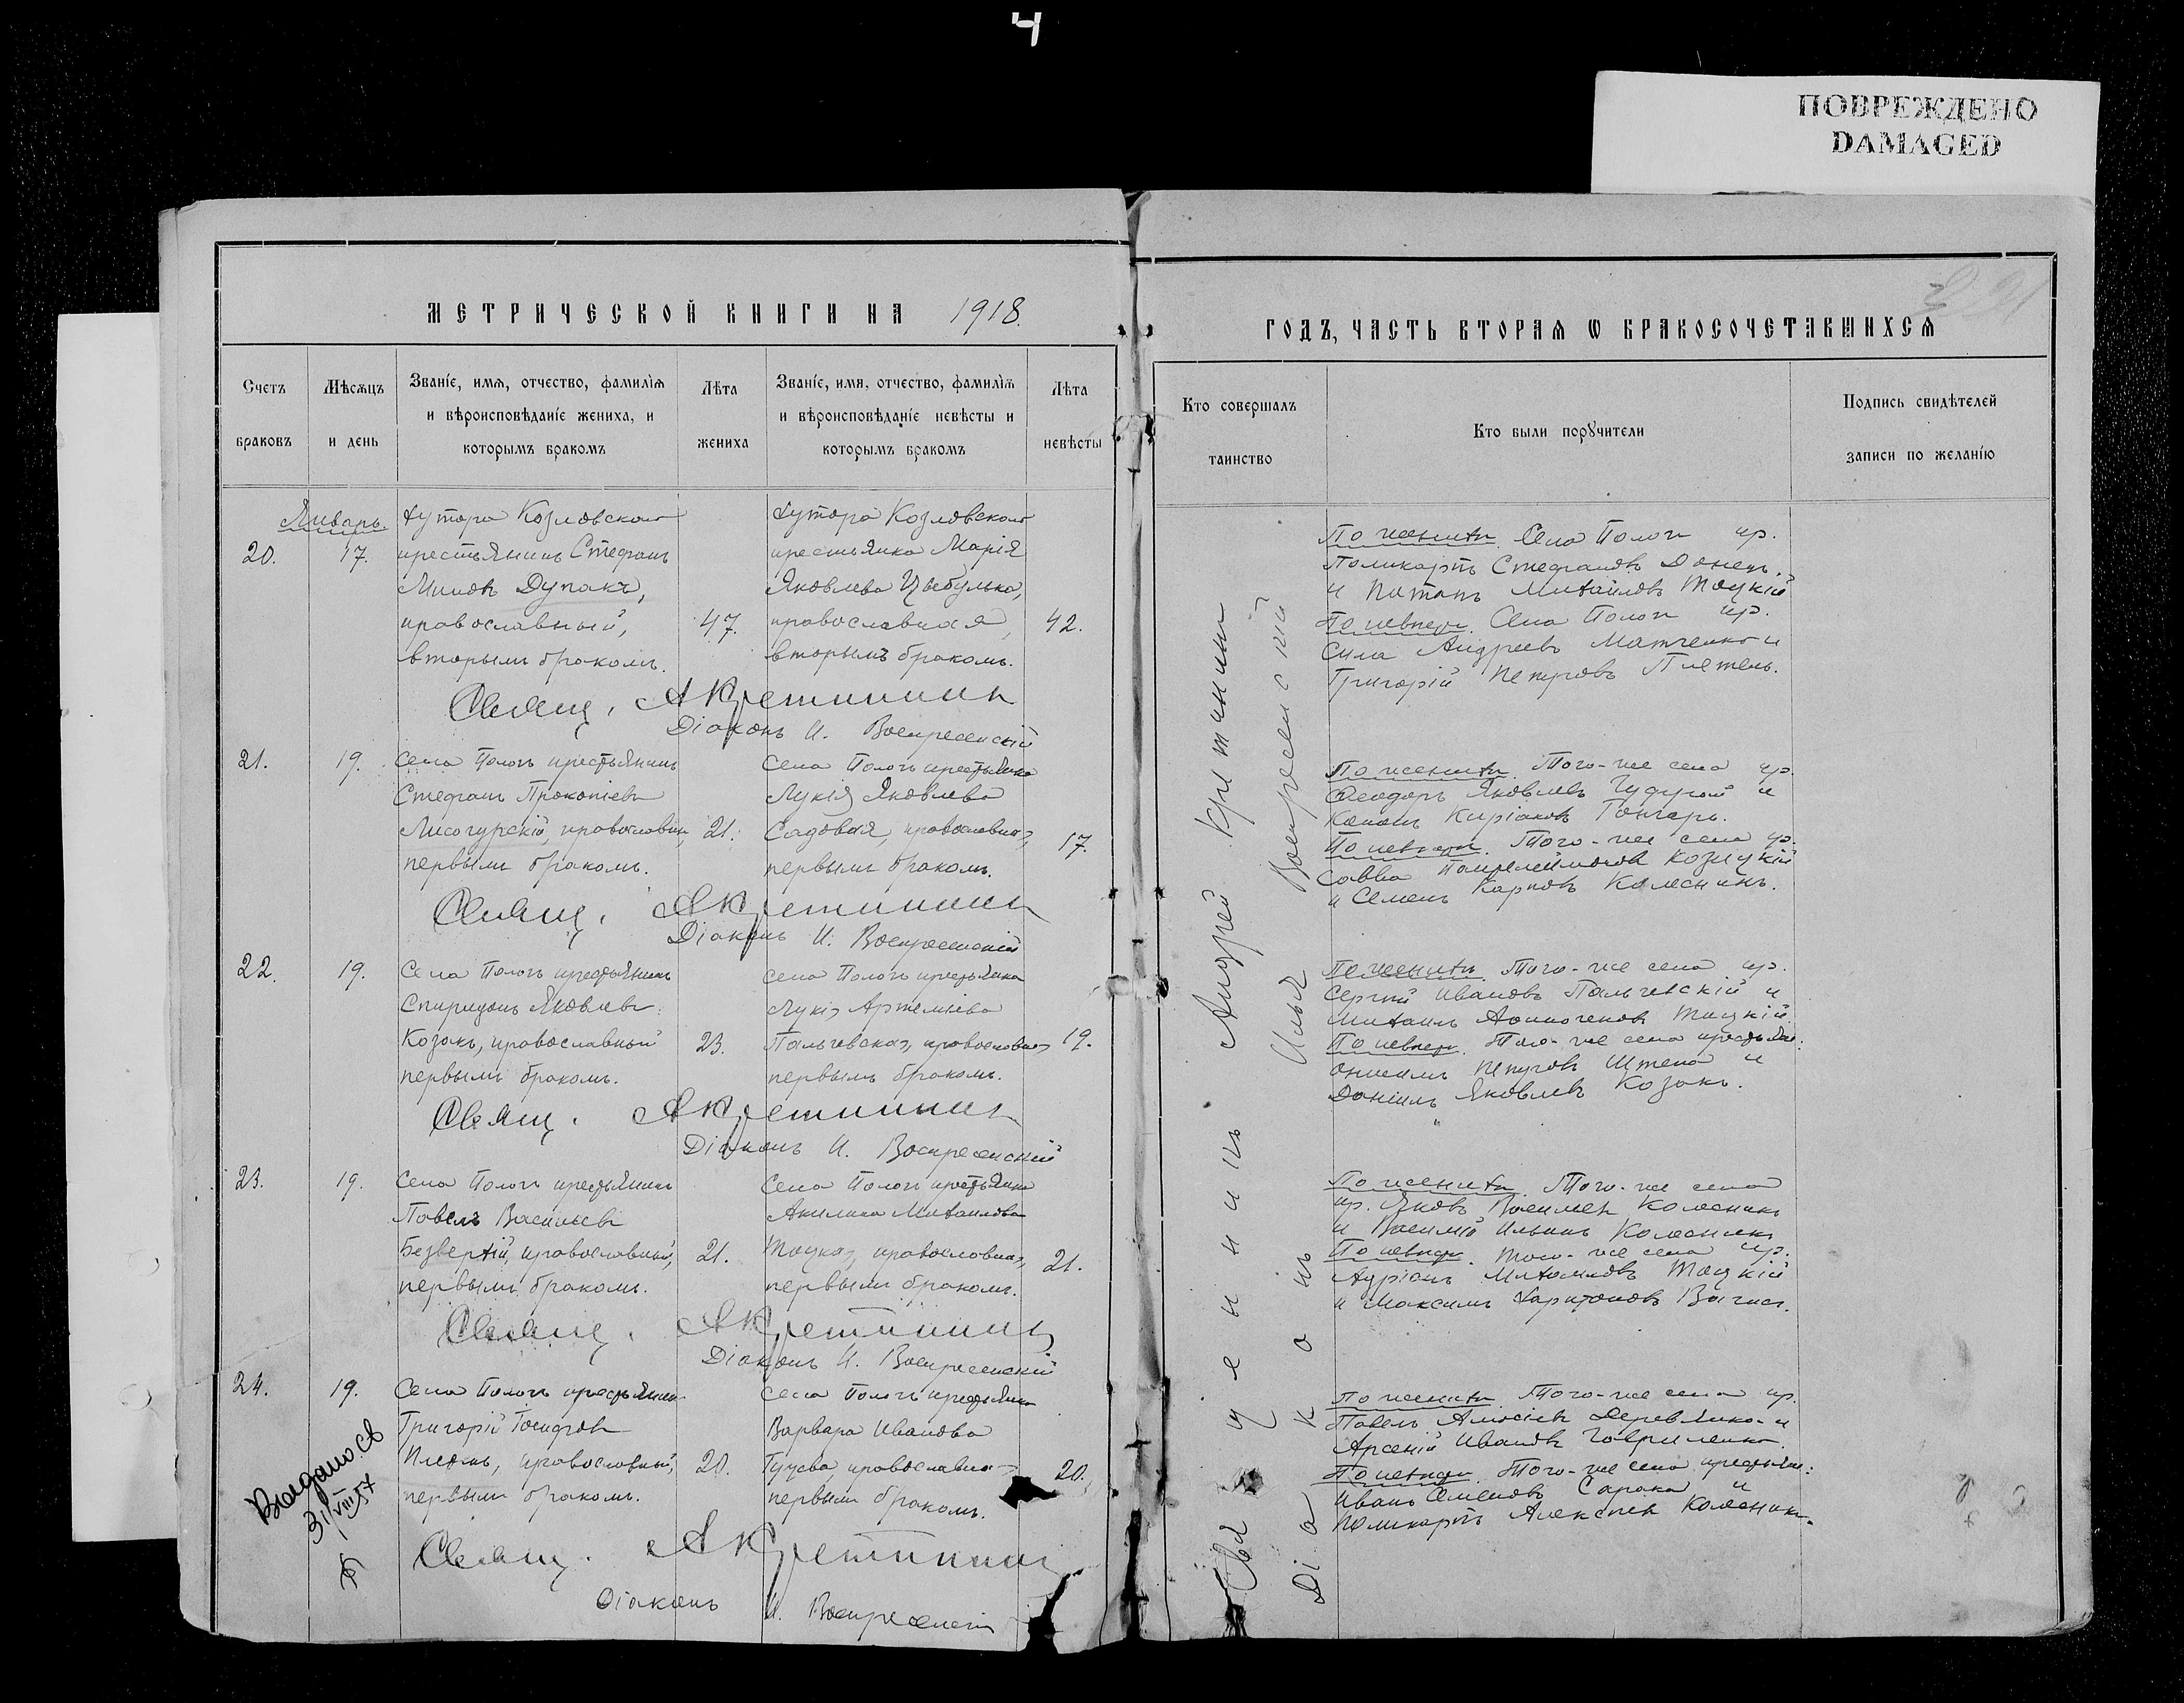 4
ПОВРЕЖДЕНО
DAMAGED
МЕТРИЧЕСКОЙ КНИГИ НА 1918.
Счетъ браковъ
Мѣсяцъ и день
Званіе, имя, отчество, фамилія и вѣроисповѣданіе жениха, и которымъ бракомъ
Лѣта жениха
Званіе, имя, отчество, фамилія и вѣроисповѣданіе невѣсты и которымъ бракомъ
Лѣта невѣсты
Январь.
20.
17.
хутора Козловскаго
крестьянинъ Стефанъ
Дупакъ,
православный,
вторымъ бракомъ.
47.
хутора Козловскаго
крестьянка Марія
Яковлева Цыбулька,
православная,
вторымъ бракомъ.
42.
Свящ. А Кретининъ
Діаконъ И. Воскресенскій
21.
19.
Села Пологъ крестьянинъ
Стефанъ Прокопіевъ
Лисогурскій, православный,
первымъ бракомъ.
21.
Села Пологъ крестьянка
Лукія Яковлева
Садовая, православная,
первымъ бракомъ.
17.
Свящ. А Кретининъ
Діаконъ И. Воскресенскій
22.
19.
Села Пологъ крестьянинъ
Спиридонъ Яковлевъ
Козакъ, православный
первымъ бракомъ.
23.
Села Пологъ крестьянка
Лукія Артеміева
Пальчевская, православная
первымъ бракомъ.
19.
Свящ. А Кретининъ
Діаконъ И. Воскресенскій
23.
19.
Села Пологъ крестьянинъ
Павелъ Васильевъ
Безверхій, православный,
первымъ бракомъ.
21.
Села Пологъ крестьянка
Акилина Михаилова
Тоцкая, православная,
первымъ бракомъ.
21.
Свящ. А Кретининъ
Діаконъ И. Воскресенскій
24.
19.
Села Пологъ крестьянинъ
Григорій Іосифовъ
православный,
первымъ бракомъ.
20.
Села Пологъ крестьянка
Варвара Иванова
православная
первымъ бракомъ.
20.
Выдано св
31/VIII 57
Свящ. А Кретининъ
Діаконъ И. Воскресенскій
ГОДЪ, ЧАСТЬ ВТОРАЯ Ѡ БРАКОСОЧЕТАВШИХСЯ
Кто совершалъ таинство
Кто были порꙋчители
Подпись свидѣтелей записи по желанію
Священникъ Андрей Кретининъ
Діаконъ Илья Воскресенскій
По женихѣ. Села Пологи кр.
Поликарпъ Стефановъ Донецъ.
и Потапъ Михаиловъ Тоцкій
По невѣстѣ. Села Пологи кр.
Сила Андреевъ Матченко и
Григорій Петровъ Плетень.
По женихѣ. Того-же села кр.
Ѳеодоръ Яковлевъ и
Кононъ Киріаковъ Гончаръ.
По невѣстѣ. Того-же села кр.
Савва Пантелеймоновъ Козицкій
и Семенъ Карповъ Колесникъ.
По женихѣ. Того-же села кр.
Сергій Ивановъ Пальчевскій и
Михаилъ Тоцкій.
По невѣстѣ. Того-же села крестьяне:
Онисимъ Петровъ Штепа и
Даніилъ Яковлевъ Козакъ.
По женихѣ. Того-же села
кр. Яковъ Васильевъ Колесникъ
и Василій Ильинъ Колесникъ
По невѣстѣ. Того-же села кр.
Адріанъ Михаиловъ Тоцкій
и Максимъ Харитоновъ
По женихѣ. Того-же села кр.
Павелъ Деревянко и
Арсеній Ивановъ Гавриленко.
По невѣстѣ. Того-же села крестьяне:
Иванъ Семеновъ Сарака и
Поликарпъ Алексѣевъ Колесникъ.